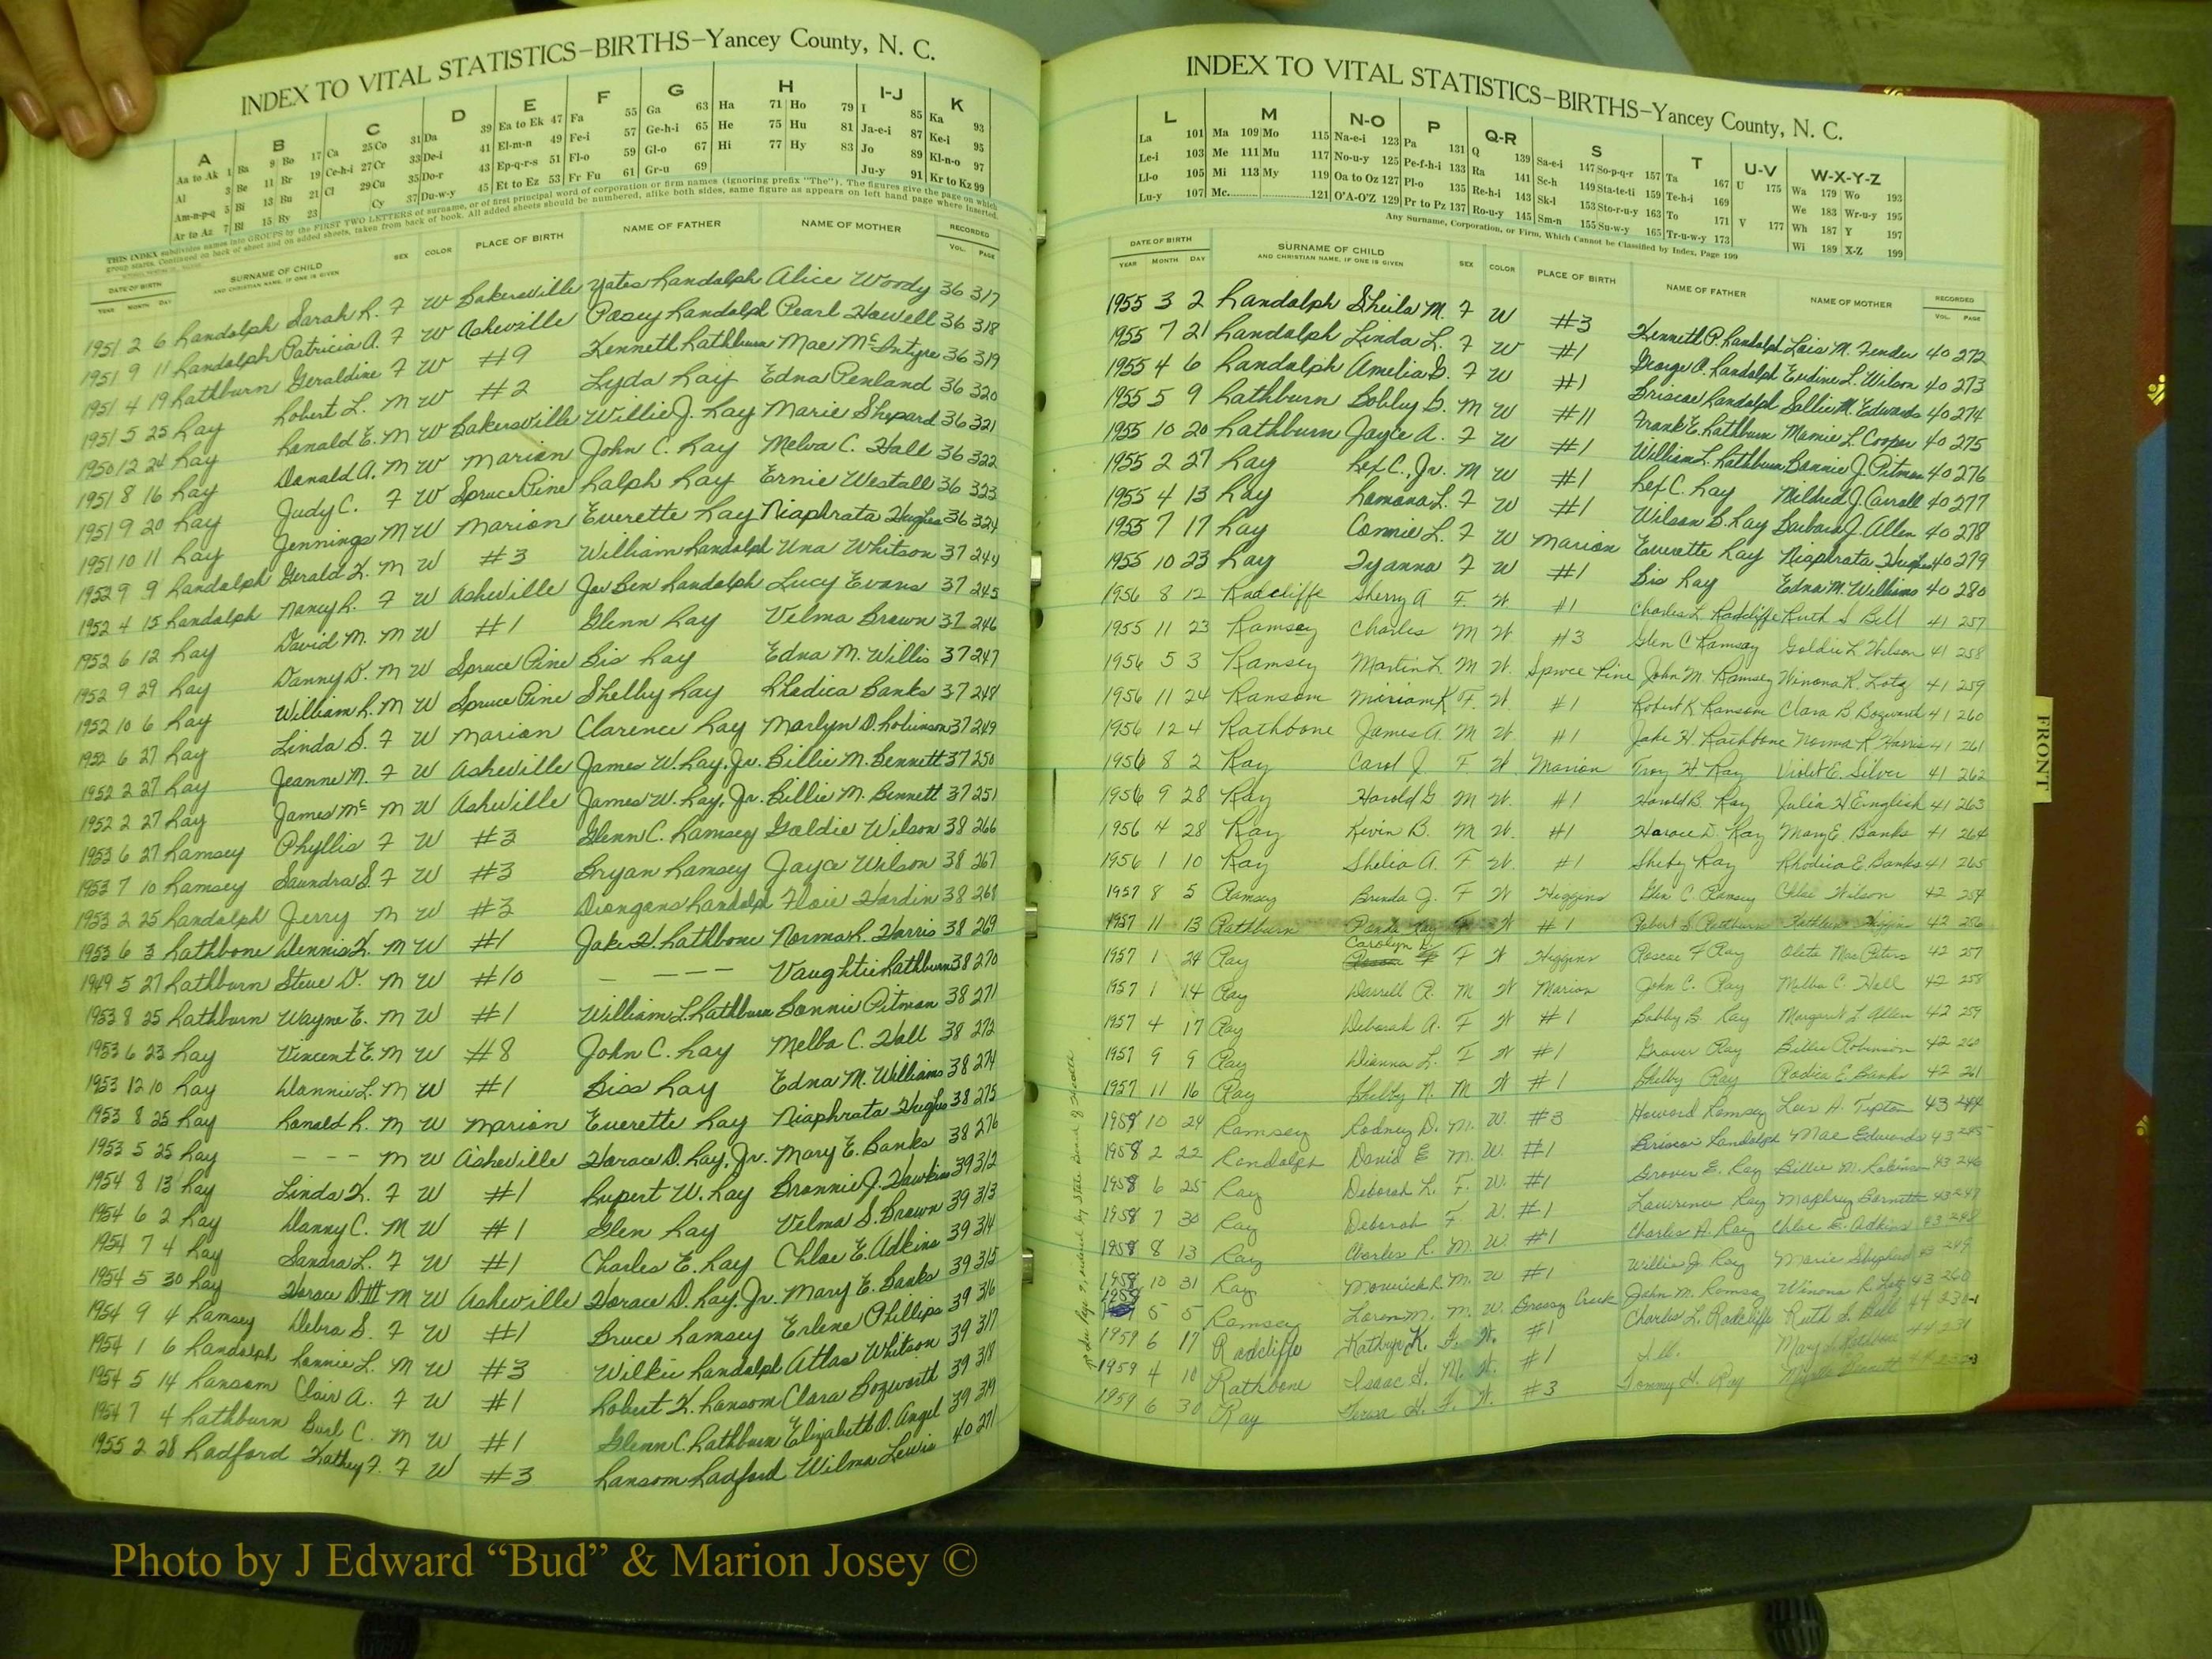 INDEX TO VITAL STATISTICS–BIRTHS–Yancey County, N. C.
A B C D E F G H I-J K
Aa to Ak 1 Ba 9 Bo 17 Ca 25 Co 31 Da 39 Ea to Ek 47 Fa 55 Ga 63 Ha 71 Ho 79 I 85 Ka 93
Al 3 Be 11 Br 19 Ce-h-i 27 Cr 33 De-i 41 El-m-n 49 Fe-i 57 Ge-h-i 65 He 75 Hu 81 Ja-e-i 87 Ke-i 95
Am-n-p-q 5 Bi 13 Bu 21 Cl 29 Cu 35 Do-r 43 Ep-q-r-s 51 Fl-o 59 Gl-o 67 Hi 77 Hy 83 Jo 89 Kl-n-o 97
Ar to Az 7 Bl 15 By 23 Cy 37 Du-w-y 45 Et to Ez 53 Fr Fu 61 Gr-u 69 Ju-y 91 Kr to Kz 99
THIS INDEX subdivides names into GROUPS by the FIRST TWO LETTERS of surname, or of first principal word of corporation or firm names (ignoring prefix "The"). The figures give the page on which
group starts. Continued on back of sheet and on added sheets, taken from back of book. All added sheets should be numbered, alike both sides, same figure as appears on left hand page where inserted.
DATE OF BIRTH SURNAME OF CHILD SEX COLOR PLACE OF BIRTH NAME OF FATHER NAME OF MOTHER RECORDED
YEAR MONTH DAY AND CHRISTIAN NAME, IF ONE IS GIVEN VOL. PAGE
1951 2 6 Randolph Sarah R. F W Bakersville Yates Randolph Alice Woody 36 317
1951 9 11 Randolph Patricia A. F W Asheville Posey Randolph Pearl Howell 36 318
1951 4 19 Rathburn Geraldine F W #9 Kenneth Rathburn Mae McIntyre 36 319
1951 5 25 Ray Robert L. M W #2 Lyda Ray Edna Penland 36 320
1950 12 24 Ray Ronald E. M W Bakersville Willie J. Ray Marie Shepard 36 321
1951 8 16 Ray Donald A. M W Marion John C. Ray Melva C. Hall 36 322
1951 9 20 Ray Judy C. F W Spruce Pine Ralph Ray Ernie Westall 36 323
1951 10 11 Ray Jennings M W Marion Everette Ray Niaphrata Hughes 36 324
1952 9 9 Randolph Gerald K. M W #3 William Randolph Una Whitson 37 244
1952 4 15 Randolph Nancy R. F W Asheville Joe Ben Randolph Lucy Evans 37 245
1952 6 12 Ray David M. M W #1 Glenn Ray Velma Brown 37 246
1952 9 29 Ray Danny D. M W Spruce Pine Bis Ray Edna M. Willis 37 247
1952 10 6 Ray William R. M W Spruce Pine Shelby Ray Rhodica Banks 37 248
1952 6 27 Ray Linda S. F W Marion Clarence Ray Marlyn D. Robinson 37 249
1952 2 27 Ray Jeanne M. F W Asheville James W. Ray, Jr. Billie M. Bennett 37 250
1952 2 27 Ray James Mc M W Asheville James W. Ray, Jr. Billie M. Bennett 37 251
1953 6 27 Ramsey Phyllis F W #3 Glenn C. Ramsey Goldie Wilson 38 266
1953 7 10 Ramsey Saundra S. F W #3 Bryan Ramsey Jayce Wilson 38 267
1953 2 25 Randolph Jerry M W #3 Randolph Hardin 38 268
1953 6 3 Rathbone Dennis K. M W #1 Jake H. Rathbone Norma R. Harris 38 269
1949 5 27 Rathburn Steve D. M W #10 – – – – Vaughtie Rathburn 38 270
1953 8 25 Rathburn Wayne E. M W #1 William L. Rathburn Bonnie Pitman 38 271
1953 6 23 Ray Vincent E. M W #8 John C. Ray Melba C. Hall 38 272
1953 12 10 Ray Dannie L. M W #1 Biss Ray Edna M. Williams 38 274
1953 8 25 Ray Ronald R. M W Marion Everette Ray Niaphrata Hughes 38 275
1953 5 25 Ray – – – M W Asheville Horace D. Ray, Jr. Mary E. Banks 38 276
1954 8 13 Ray Linda K. F W #1 Rupert W. Ray Brannie J. Hawkins 39 312
1954 6 2 Ray Danny C. M W #1 Glen Ray Velma S. Brown 39 313
1954 7 4 Ray Sandra L. F W #1 Charles E. Ray Chloe E. Adkins 39 314
1954 5 30 Ray Horace D III M W Asheville Horace D. Ray, Jr. Mary E. Banks 39 315
1954 9 4 Ramsey Debra S. F W #1 Bruce Ramsey Erlene Phillips 39 316
1954 1 6 Randolph Ronnie L. M W #3 Wilkie Randolph Atlas Whitson 39 317
1954 5 14 Ransom Clair A. F W #1 Robert K. Ransom Clara Bozworth 39 318
1954 7 4 Rathburn Burl C. M W #1 Glenn C. Rathburn Elizabeth D. Angel 39 319
1955 2 28 Radford Kathey F. F W #3 Ransom Radford Wilma Lewis 40 271
INDEX TO VITAL STATISTICS–BIRTHS–Yancey County, N. C.
L M N-O P Q-R S T U-V W-X-Y-Z
La 101 Ma 109 Mo 115 Na-e-i 123 Pa 131 Q 139 Sa-e-i 147 So-p-q-r 157 Ta 167 U 175 Wa 179 Wo 193
Le-i 103 Me 111 Mu 117 No-u-y 125 Pe-f-h-i 133 Ra 141 Sc-h 149 Sta-te-ti 159 Te-h-i 169 We 183 Wr-u-y 195
Ll-o 105 Mi 113 My 119 Oa to Oz 127 Pl-o 135 Re-h-i 143 Sk-l 153 Sto-r-u-y 163 To 171 V 177 Wh 187 Y 197
Lu-y 107 Mc. 121 O'A-O'Z 129 Pr to Pz 137 Ro-u-y 145 Sm-n 155 Su-w-y 165 Tr-u-w-y 173 Wi 189 X-Z 199
Any Surname, Corporation, or Firm, Which Cannot be Classified by Index, Page 199
DATE OF BIRTH SURNAME OF CHILD SEX COLOR PLACE OF BIRTH NAME OF FATHER NAME OF MOTHER RECORDED
YEAR MONTH DAY AND CHRISTIAN NAME, IF ONE IS GIVEN VOL. PAGE
1955 3 2 Randolph Sheila M. F W #3 Kenneth P. Randolph Lois M. Fender 40 272
1955 7 21 Randolph Linda L. F W #1 George A. Randolph Eudine L. Wilson 40 273
1955 4 6 Randolph Amelia D. F W #1 Briscoe Randolph Sallie M. Edwards 40 274
1955 5 9 Rathburn Bobby G. M W #11 Frank E. Rathburn Mamie L. Cooper 40 275
1955 10 20 Rathburn Jayce A. F W #1 William L. Rathburn Bonnie J. Pitman 40 276
1955 2 27 Ray Rex C., Jr. M W #1 Rex C. Ray Mildred J. Carroll 40 277
1955 4 13 Ray Ramona L. F W #1 Wilson B. Ray Barbara J. Allen 40 278
1955 7 17 Ray Connie L. F W Marion Everette Ray Niaphrata Hughes 40 279
1955 10 23 Ray Tyanna F W #1 Bis Ray Edna M. Williams 40 280
1956 8 12 Radcliffe Sherry A F. W. #1 Charles L. Radcliffe Ruth S Bell 41 257
1955 11 23 Ramsey Charles M W. #3 Glen C Ramsay Goldie L Wilson 41 258
1956 5 3 Ramsey Martin L M W. Spruce Pine John M. Ramsey Winona R. Lotz 41 259
1956 11 24 Ransom Miriam K F. W. #1 Robert K Ransom Clara B Bozworth 41 260
1956 12 4 Rathbone James A. M W. #1 Jake H. Rathbone Norma R Harris 41 261
1956 8 2 Ray Carol J F W. Marion Troy H. Ray Violet E. Silver 41 262
1956 9 28 Ray Harold G M W. #1 Harold B. Ray Julia H English 41 263
1956 4 28 Ray Kevin B. M W. #1 Horace D. Ray Mary E. Banks 41 264
1956 1 10 Ray Shelia A. F W. #1 Shelby Ray Rhodica E. Banks 41 265
1957 8 5 Ramsey Brenda J. F W Higgins Glen C. Ramsey Wilson 42 254
1957 11 13 Rathburn Panda Kay F W #1 Robert S Rathburn Kathleen Higgins 42 256
1957 1 24 Ray Carolyn F W Higgins Roscoe F Ray Oleta Mae Peters 42 257
1957 1 14 Ray Darrell R. M W Marion John C. Ray Melba C. Hall 42 258
1957 4 17 Ray Deborah A. F W #1 Bobby G. Ray Margaret L Allen 42 259
1957 9 9 Ray Dianna L. F W #1 Grover Ray Billie Robinson 42 260
1957 11 16 Ray Shelby N. M W #1 Shelby Ray Rodica E. Banks 42 261
1958 10 24 Ramsey Rodney D. M. W. #3 Howard Ramsey Lois A. Tipton 43 244
1958 2 22 Randolph David E M. W. #1 Briscoe Randolph Mae Edwards 43 245
1958 6 25 Ray Deborah L. F. W. #1 Grover E. Ray Billie M. Robinson 43 246
1958 7 30 Ray Deborah F W. #1 Lawrence Ray Bennett 43 247
1958 8 13 Ray Charles R. M. W. #1 Charles H. Ray Chloe E. Adkins 43 248
1958 10 31 Ray M. W #1 Willie J. Ray Marie Shepherd 43 249
1958 5 5 Ramsey Loren M. M. W. Brassy Creek John M. Ramsay Winona R. Lotz 43 260
1959 6 17 Radcliffe Kathryn K. F. W. #1 Charles L. Radcliffe Ruth S. Bell 44 230-1
1959 4 10 Rathbone Isaac H. M. W. #1 Mary Rathbone 44 231
1959 6 30 Ray Teresa H. F. W. #3 Tommy H. Ray Bennett
FRONT
Photo by J Edward “Bud” & Marion Josey ©